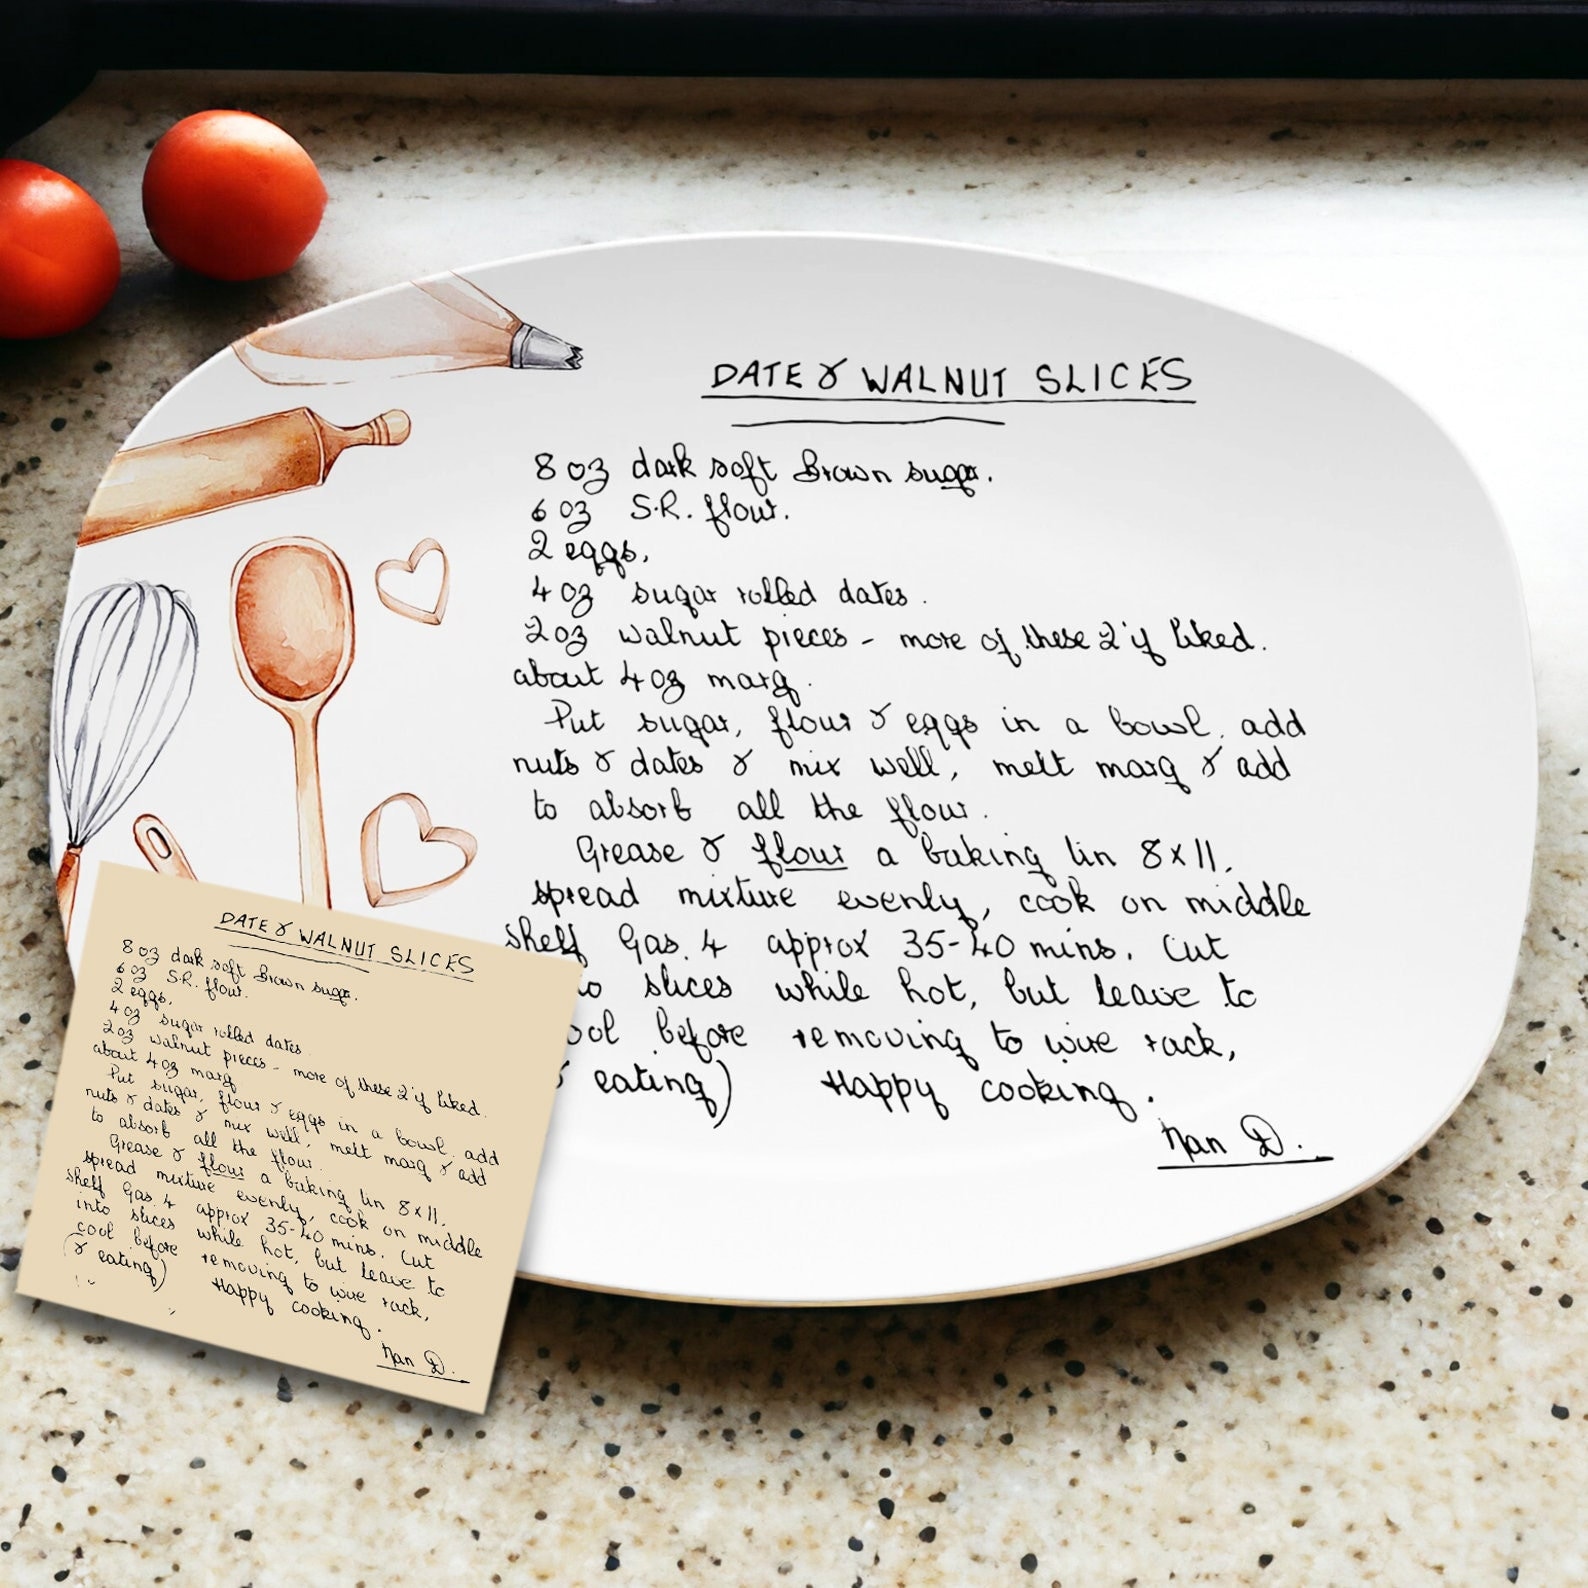 DATE & WALNUT SLICES
8 oz dark soft Brown sugar.
6 oz S.R. flour.
2 eggs,
4 oz sugar rolled dates.
2 oz walnut pieces - more of these 2 if liked.
about 4 oz marg.
Put sugar, flour & eggs in a bowl. add
nuts & dates & mix well, melt marg & add
to absorb all the flour.
Grease & flour a baking tin 8x11.
spread mixture evenly, cook on middle
shelf Gas. 4 approx 35-40 mins. Cut
to slices while hot, but leave to
ool before removing to wire rack,
& eating) Happy cooking.
Nan D.
DATE & WALNUT SLICES
8 oz dark soft Brown sugar.
6 oz S.R. flour.
2 eggs,
4 oz sugar rolled dates.
2 oz walnut pieces - more of these 2 if liked.
about 4 oz marg
Put sugar, flour & eggs in a bowl. add
nuts & dates & mix well, melt marg & add
to absorb all the flour.
Grease & flour a baking tin 8x11.
spread mixture evenly, cook on middle
shelf Gas. 4 approx 35-40 mins. Cut
into slices while hot, but leave to
cool before removing to wire rack,
(& eating) Happy cooking.
Nan D.